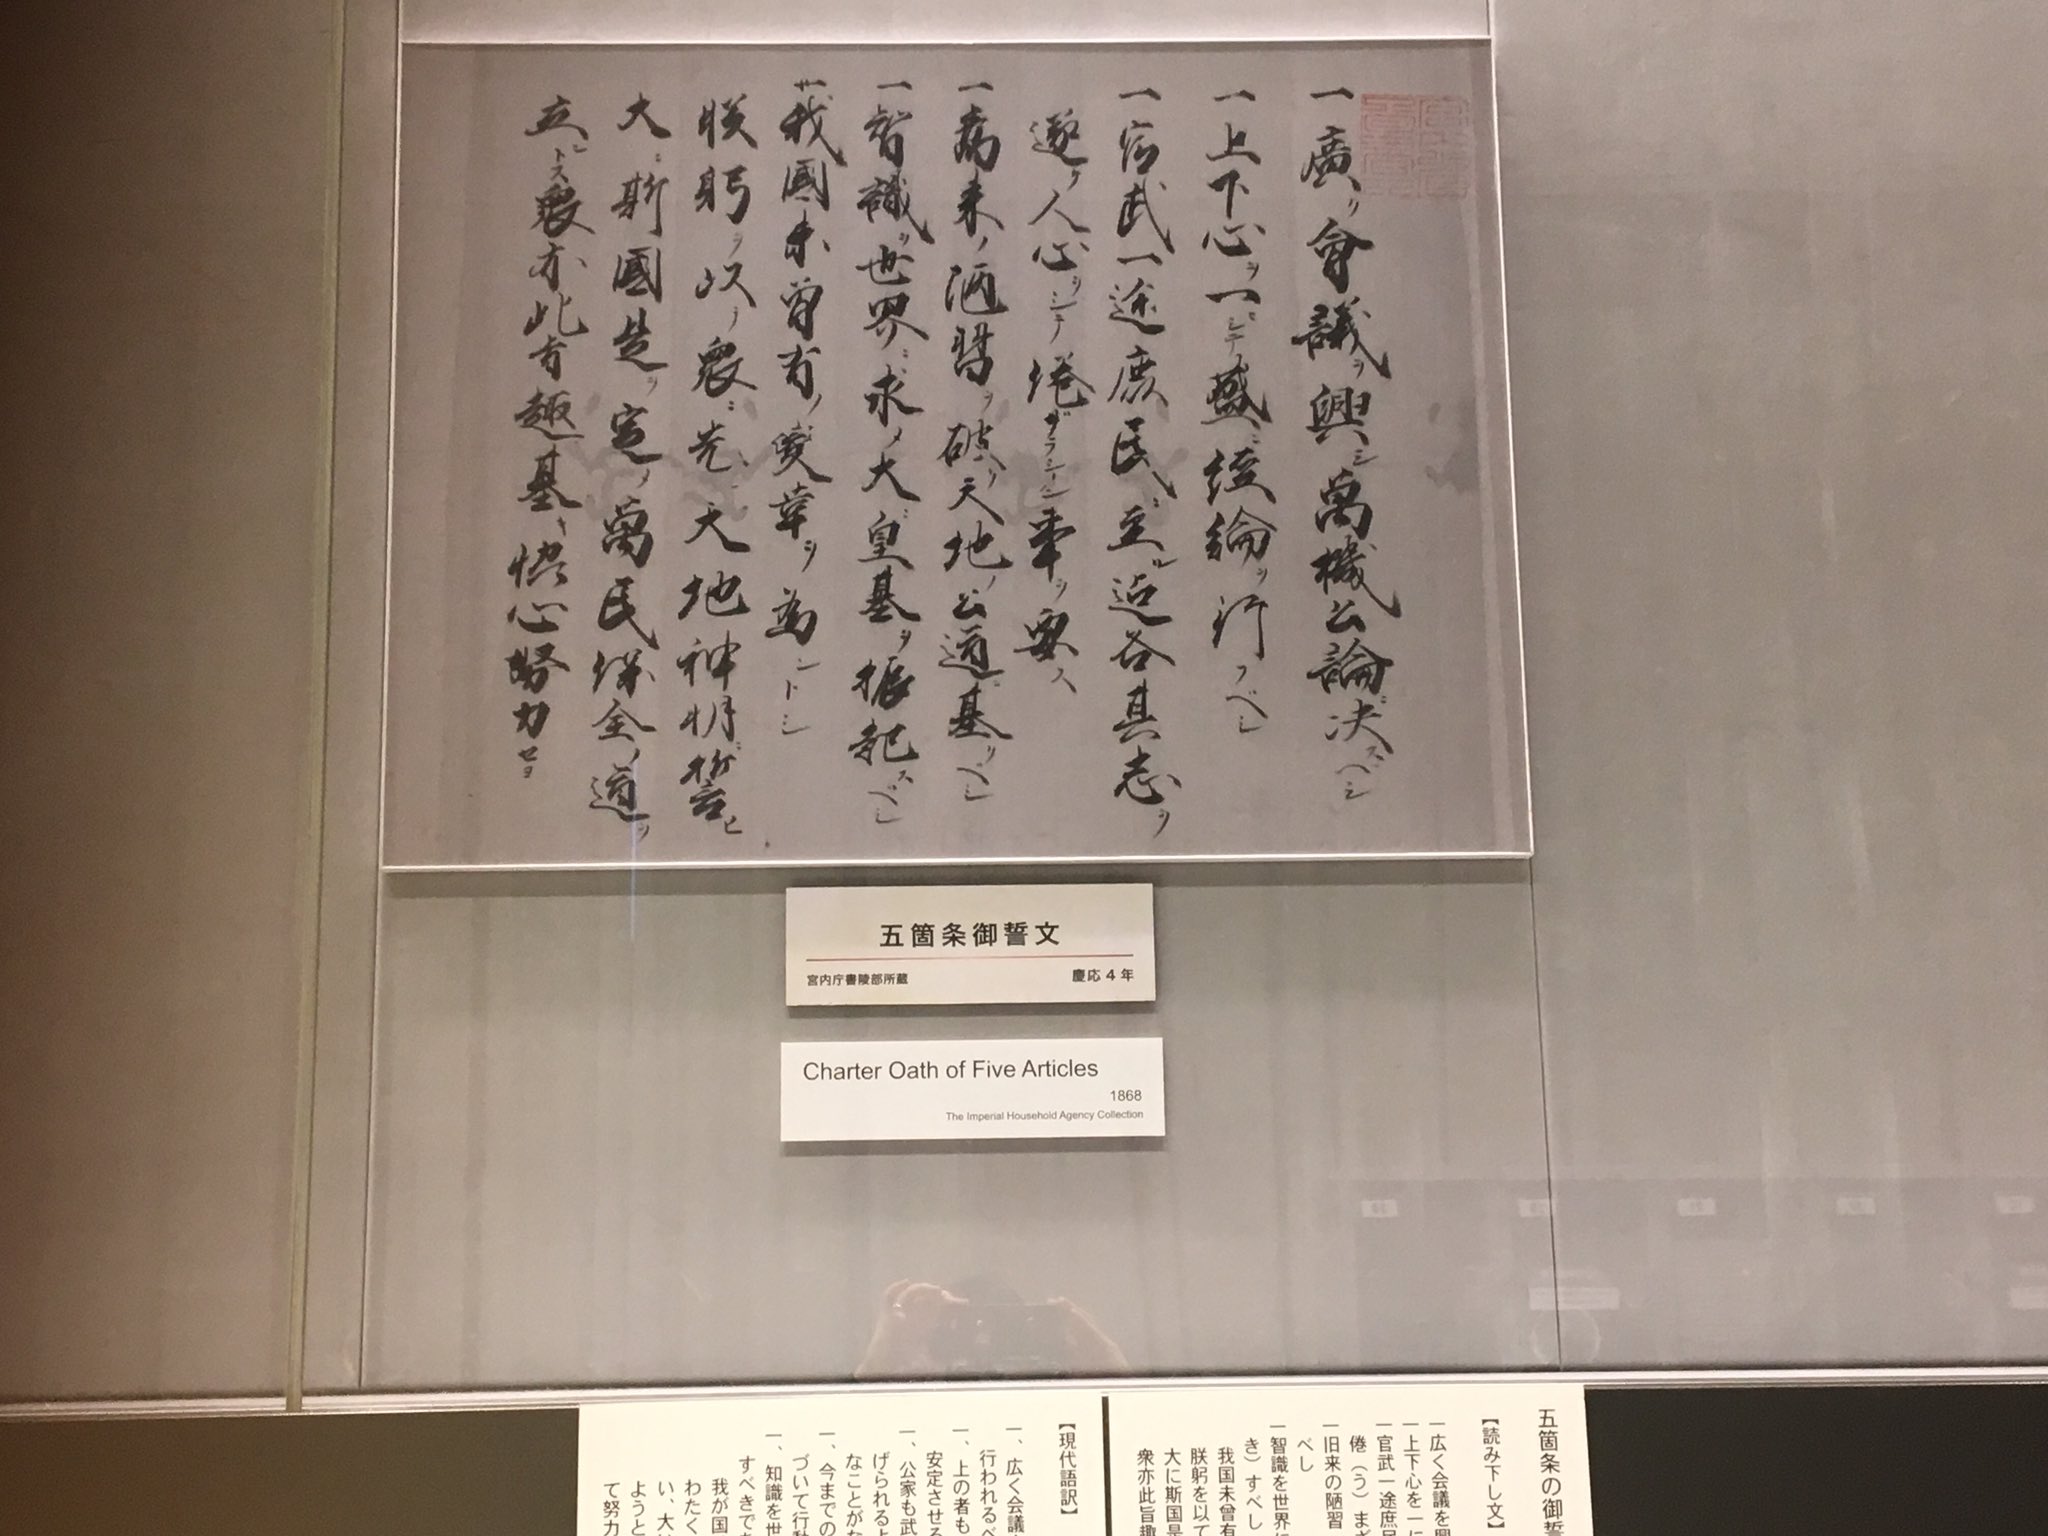 一廣ク會議ヲ興シ萬機公論ニ決スベシ
一上下心ヲ一ニシテ盛ニ經綸ヲ行フベシ
一官武一途庶民ニ至ル迄各其志ヲ
遂ケ人心ヲシテ倦ザラシメン事ヲ要ス
一舊来ノ陋習ヲ破リ天地ノ公道ニ基クベシ
一智識ヲ世界ニ求メ大ニ皇基ヲ振起スベシ
我國未曾有ノ変革ヲ為ントシ
朕躬ヲ以テ衆ニ先ンシ天地神明ニ誓ヒ
大ニ斯國是ヲ定メ萬民保全ノ道ヲ
立ントス衆亦此旨趣ニ基キ協心努力セヨ
五箇条御誓文
宮内庁書陵部所蔵 慶応4年
Charter Oath of Five Articles
1868
The Imperial Household Agency Collection
五箇条の御誓
【読み下し文】
一広く会議を興
一上下心を一に
一官武一途庶民
倦（う）まざ
一旧来の陋習
べし
一智識を世界に
き）すべし
我国未曾有
朕躬を以て
大に斯国是
衆亦此旨趣
【現代語訳】
一、広く会議
行われるべ
一、上の者も
安定させる
一、公家も武
げられるよ
なことがな
一、今までの
づいて行動
一、知識を世
すべきで
我が国
わたく
い、大
ようと
て努力